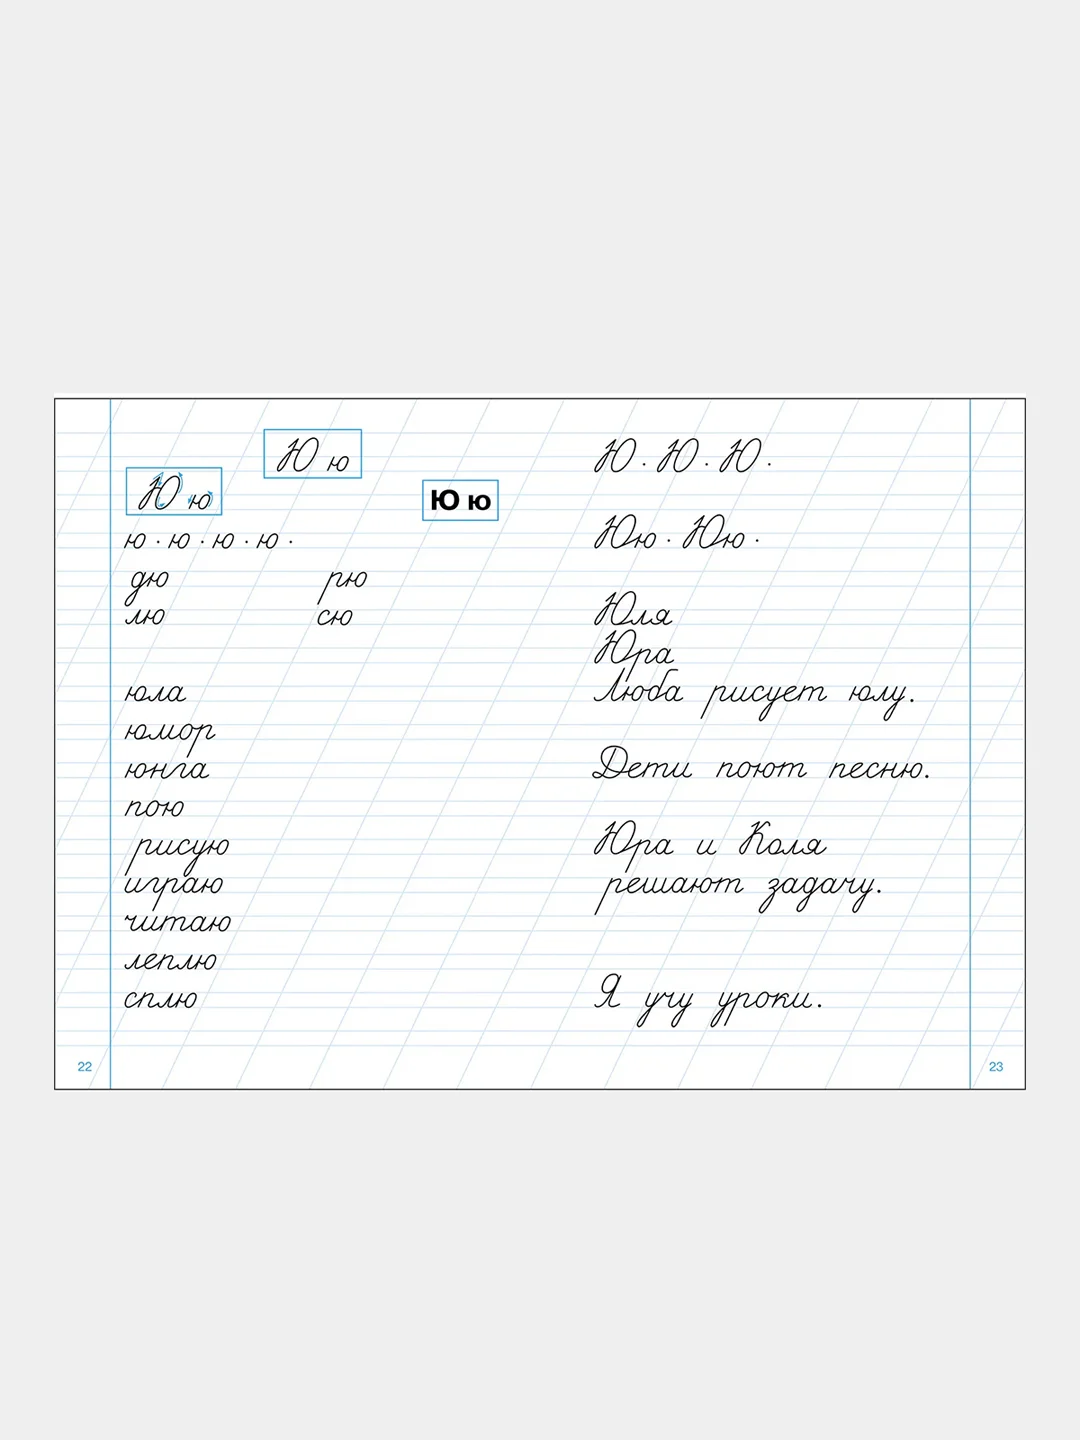 Ю ю
Ю ю
Ю ю
ю · ю · ю · ю ·
дю рю
лю сю
юла
юмор
юнга
пою
рисую
играю
читаю
леплю
сплю
22
Ю · Ю · Ю ·
Юю · Юю ·
Юля
Юра
Люба рисует юлу.
Дети поют песню.
Юра и Коля
решают задачу.
Я учу уроки.
23